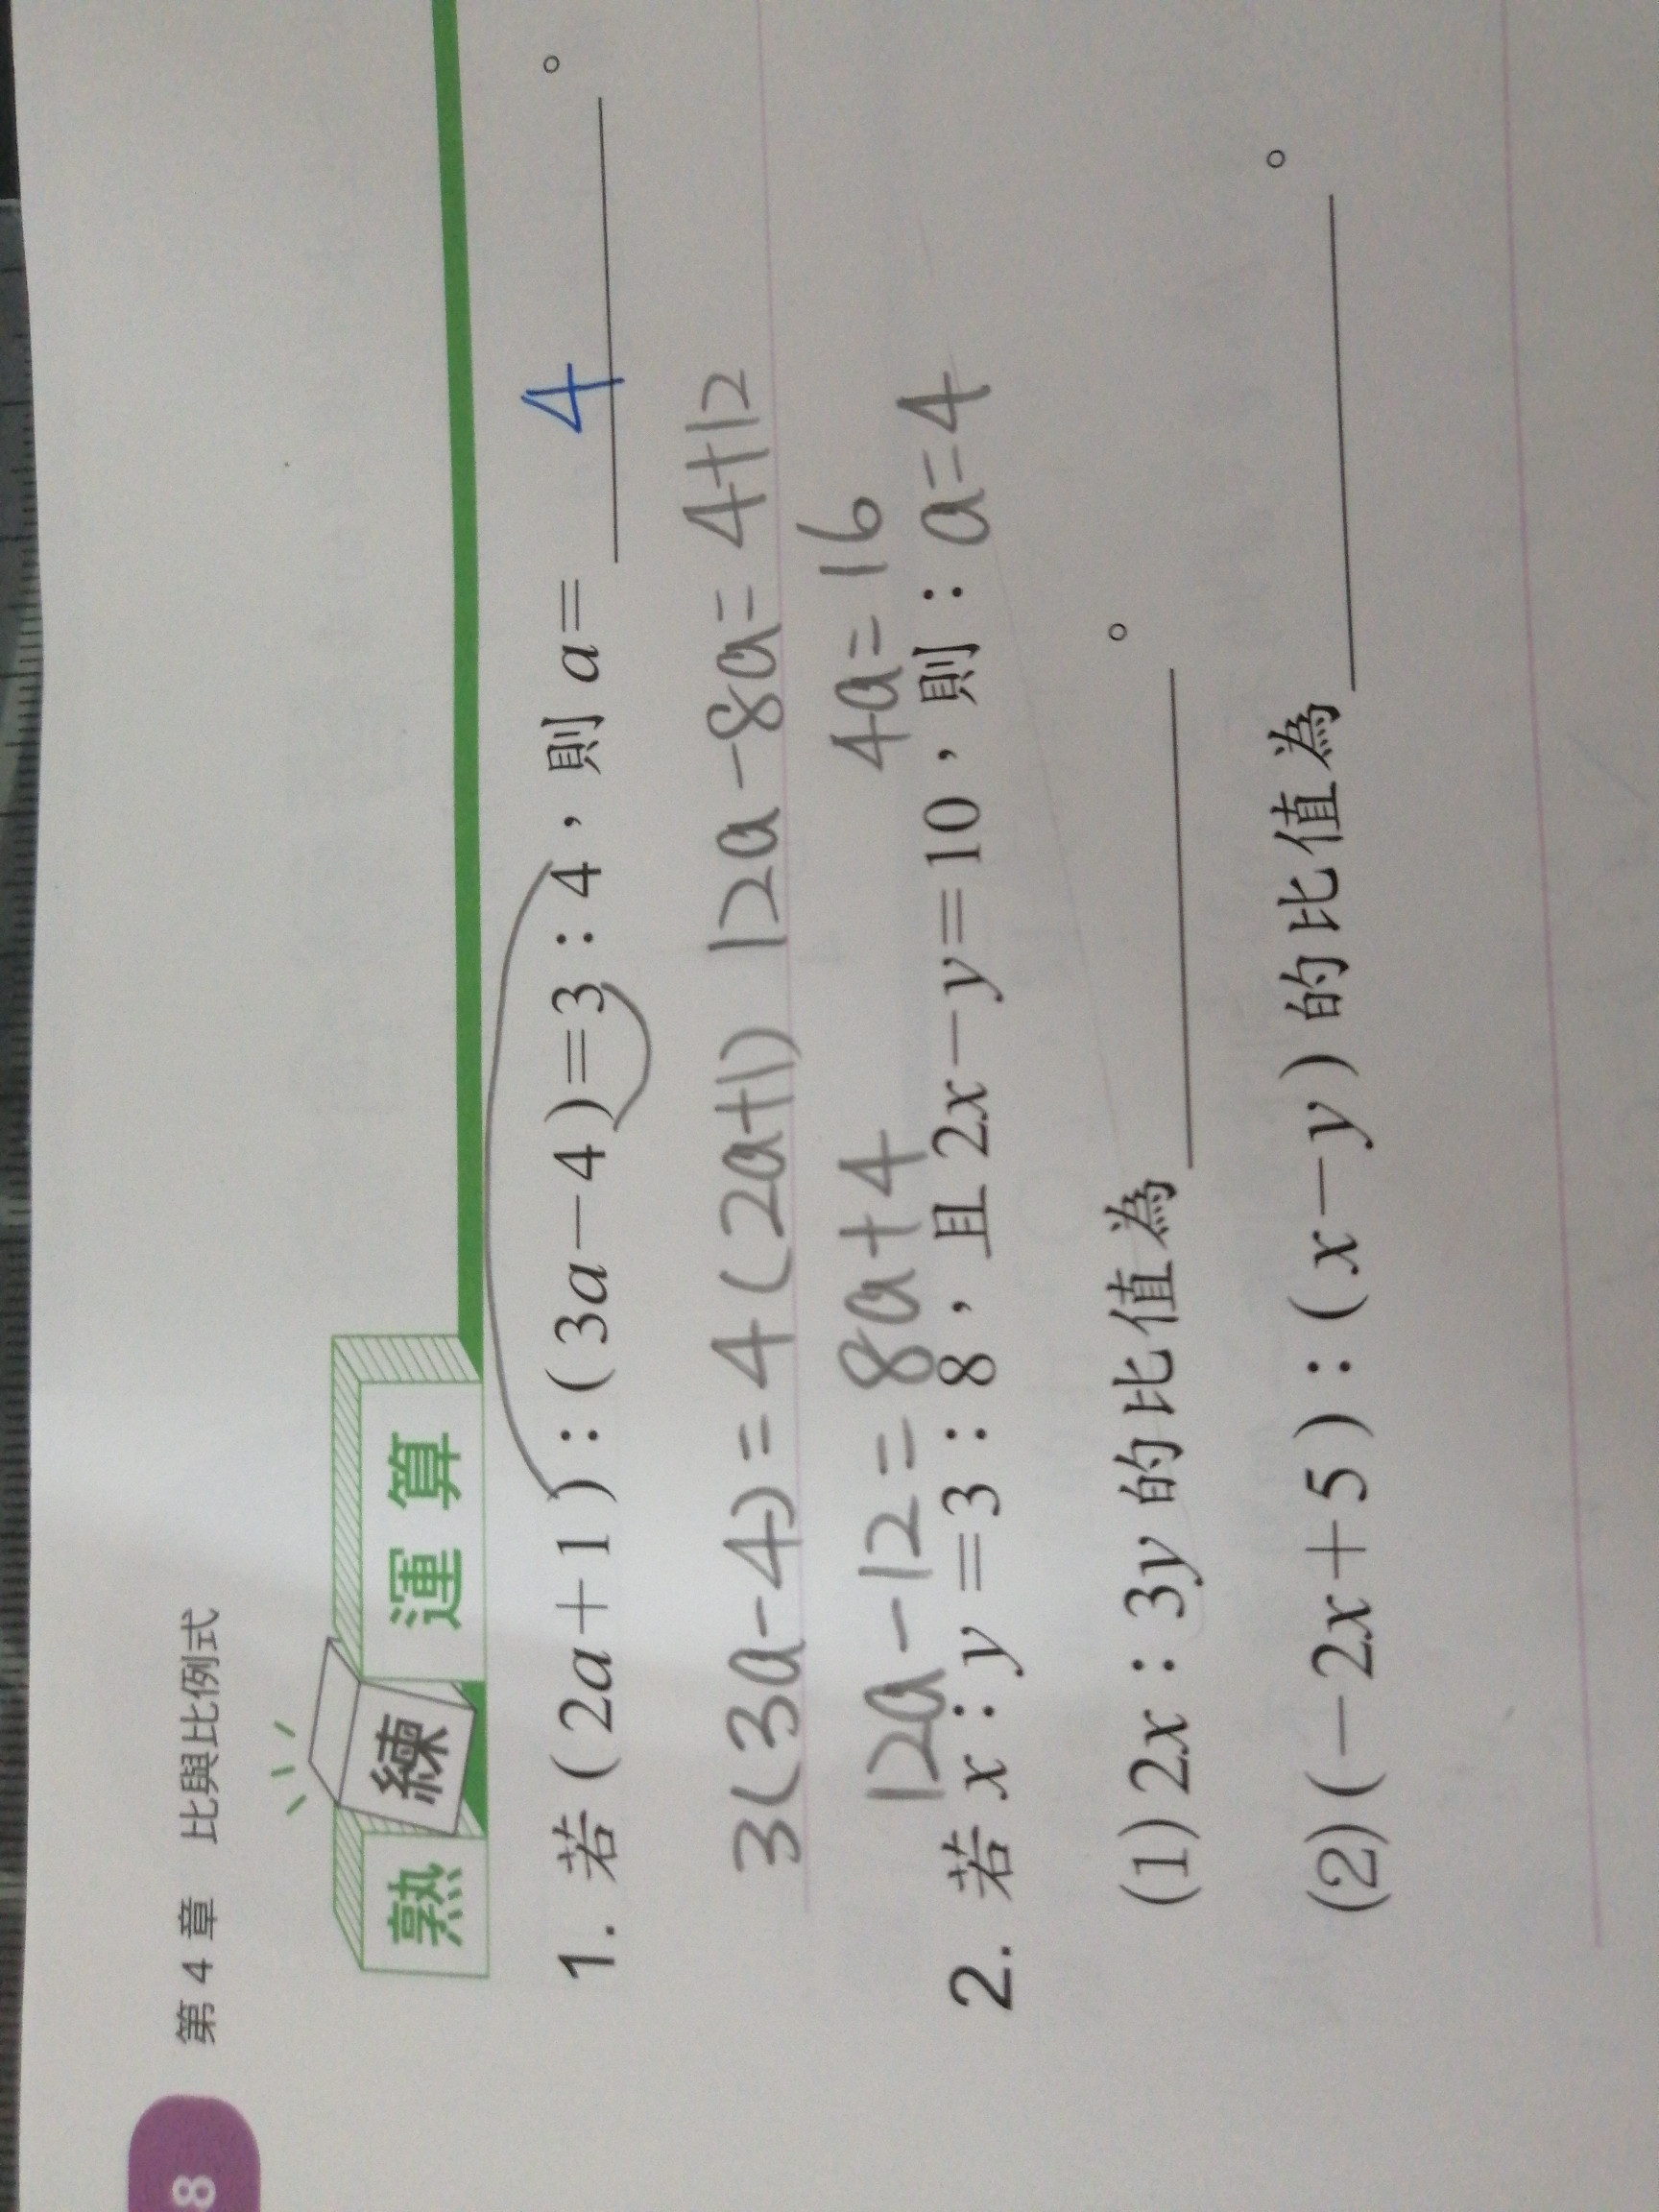 8 第4章 比與比例式
熟練運算
1. 若(2a+1):(3a-4)=3:4,則a= 4 。
3(3a-4)=4(2a+1) 12a-8a=4+12
12a-12=8a+4 4a=16
a=4
2. 若x:y=3:8,且2x-y=10,則:
(1)2x:3y的比值為 。
(2)(-2x+5):(x-y)的比值為 。